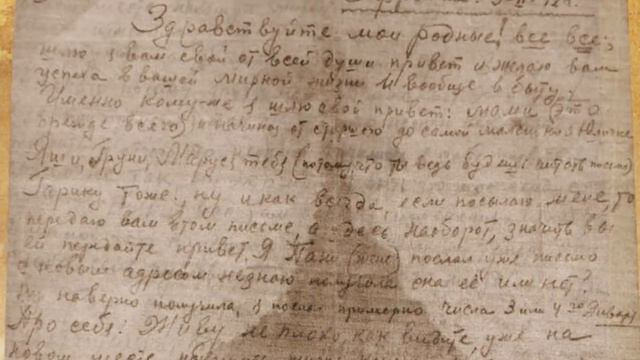 Здравствуйте мои родные! все все,
шлю я вам свой от всей души привет и желаю вам
успеха в вашей мирной жизни и вообще в быту.
Именно кому-же я шлю свой привет: мами (это
прежде всего) и начиная от старшего до самой
Яши, Груни, Маруси, тебя (потому, что ты ведь будешь читать письмо)
Гарику тоже. ну и как всегда, если посылаю мене, то
передаю вам в том письме, а здесь наоборот, значить вы
ей передайте привет. Я Пани послал уже письмо
с новым адресом незнаю получила она её или нет?
наверно получила, я послал примерно числа 3 или 4го Января
Про себя: Живу не плохо, как видите, уже на
новом месте